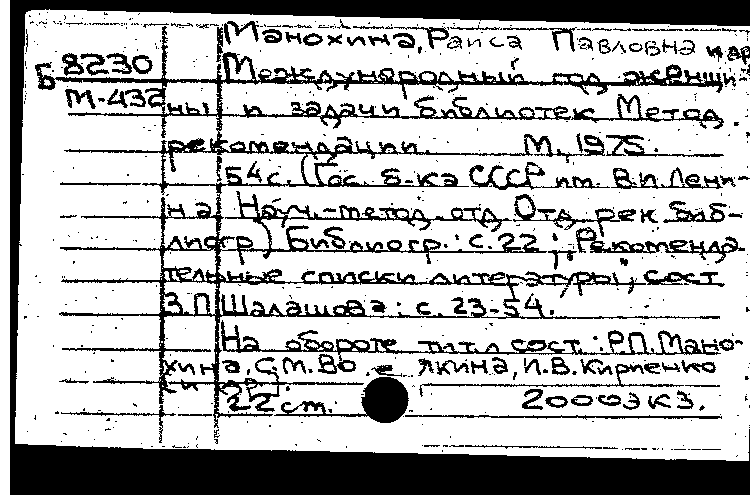 Манохина, Раиса Павловна и др
Б 8230
М-432
Международный год женщи-
ны и задачи библиотек Метод.
рекомендации. М., 1975.
54 с. (Гос. б-ка СССР им. В.И. Лени-
на Науч.-метод. отд Отд рек биб-
лиогр) Библиогр.: с. 22; Рекоменда-
тельные списки литературы, сост
З.П Шалашова: с. 23-54.
На обороте тит. л сост.: Р.П. Мано-
хина, С.М. Во якина, И.В. Кирпенко
[и др].
22 см. 2000экз.